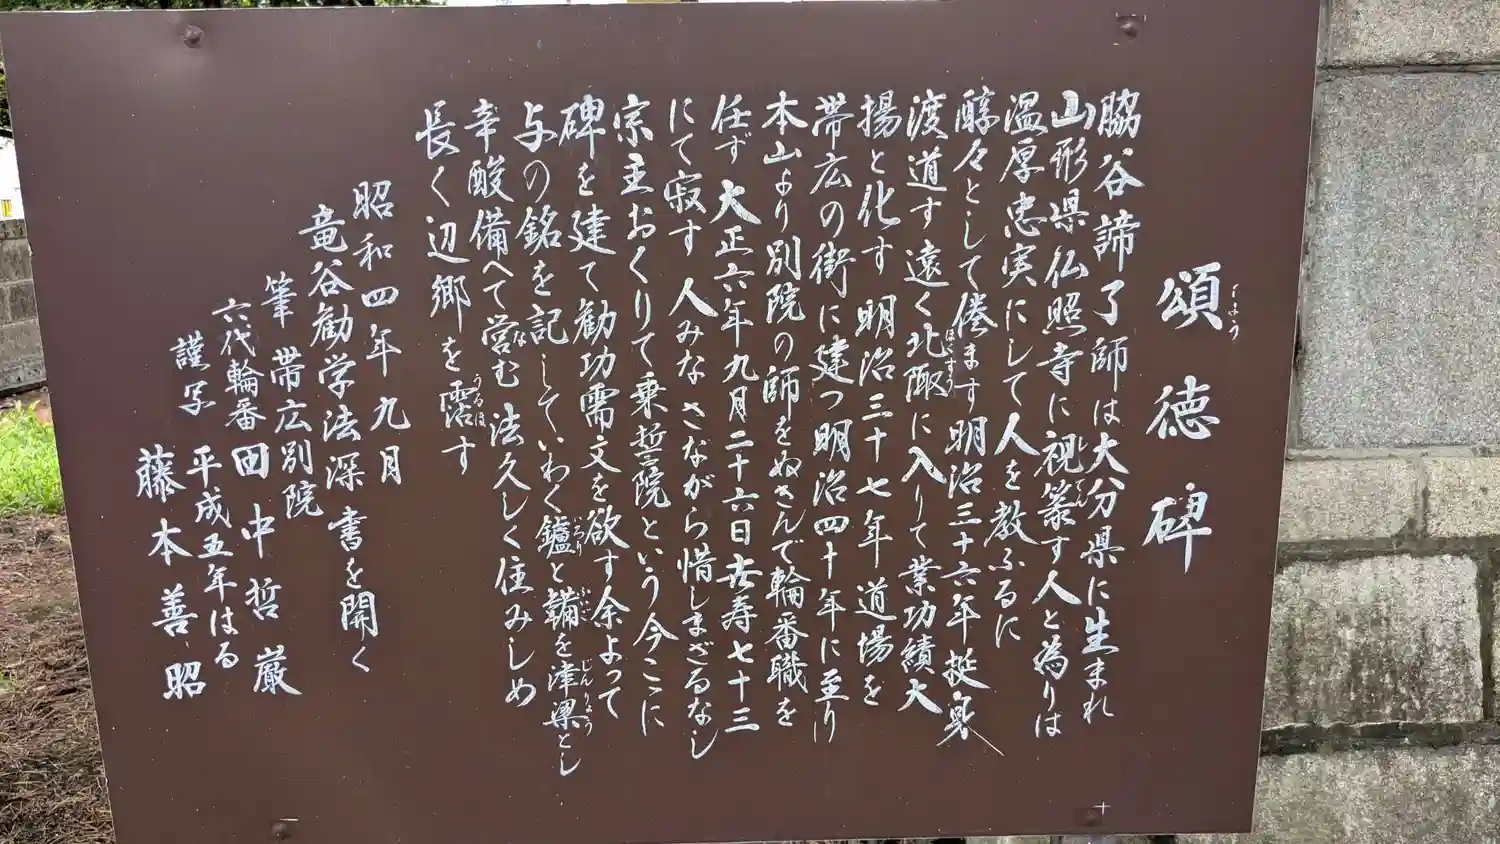 頌徳碑
しょう
脇谷諦了師は大分県に生まれ
山形県仏照寺に視篆す人と為りは
してん
温厚忠実にして人を教ふるに
醇々として倦ます明治三十六年挺身
渡道す遠く北陬に入りて業功績大
ほくすう
揚と化す明治三十七年道場を
帯広の街に建つ明治四十年に至り
本山より別院の師をぬきんで輪番職を
任ず大正六年九月二十六日寿七十三
にて寂す人みなさながら惜しまざるなし
宗主おくりて乗誓院という今ここに
碑を建て勧功需文を欲す余よって
与の銘を記していわく鑪と鞴を津梁とし
いろり
ふいご
じんりょう
辛酸備へて営む法久しく住みしめ
な
長く辺郷を霑す
うるほ
昭和四年九月
竜谷勧学法深書を開く
筆帯広別院
六代輪番田中哲巌
謹写平成五年はる
藤本善昭